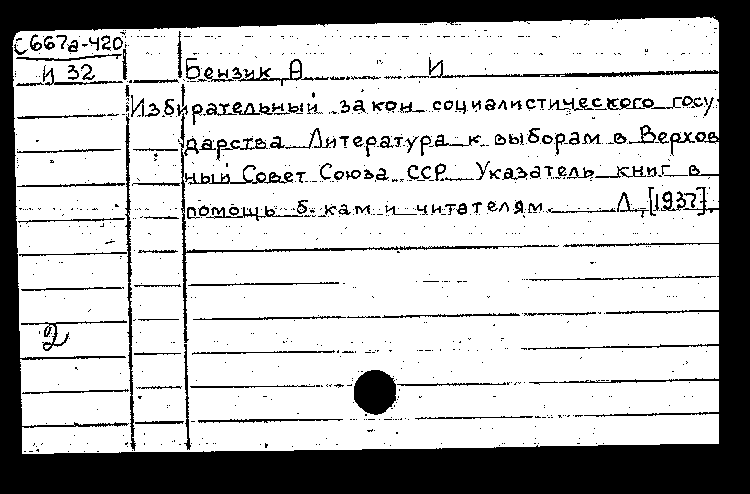 С667а-420
И 32
Бензик, А И
Избирательный закон социалистического госу-
дарства Литература к выборам в Верхов
ный Совет Союза ССР Указатель книг в
помощь б-кам и читателям. Л, [1937].
2